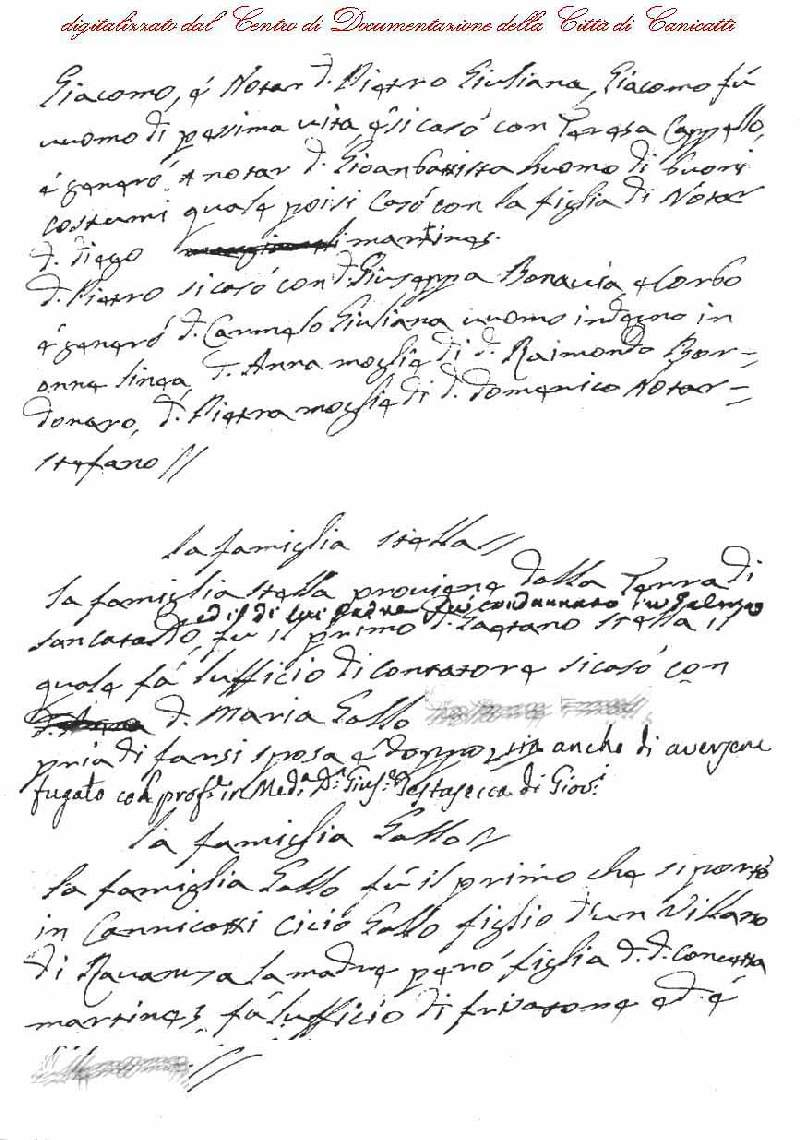 digitalizzato dal Centro di Documentazione della Città di Canicattì
Giacomo, é Notar d. Pietro Giuliana, Giacomo fú
uuomo di pessima vita, é si casó con Teresa Cappello,
é generó á notar d. Gioanbattista huomo di buoni
costumi quale poisi Casó con la figlia di Notar
d. diego martines.
d. Pietro si casó con d. Giuseppa Bonavia, e Corbo
é generó d. Carmelo Giuliana uuomo indegno in
onne linea, d. Anna moglie di d. Raimondo Bor=
donaro, d. Pietra moglie di d. Domenico Notar=
stefano //
la famiglia stella //
la famiglia stella proviene dalla Terra di
ed il di lui Padre fu condannato in
sancataldo, fu il primo d. Gaetano stella il
quale fá lufficio di contatore si casó con
d. Maria Gallo
pria di farsi sposa é doppo anche di avergene
fugato col prof. in Med. Dr. Gius. Testasecca di Giov.
la famiglia Gallo //
la famiglia Gallo fú il primo che si portó
in Cannicatti Cicio Gallo figlio d'un Villano
di Ravanusa la madre peró figlia d. d. Concetta
martines fá lufficio di frivatone ed é